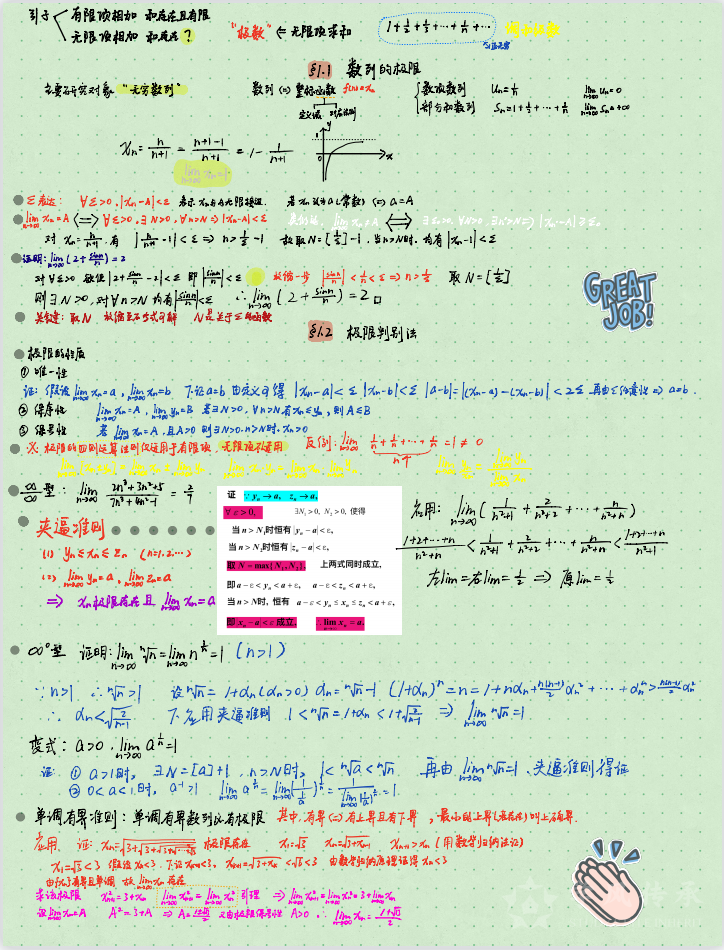 引子 有限项相加 和存在且有限
无限项相加 和存在? "级数" ⇐ 无限项求和 1+1/2+1/3+…+1/n+…
§1.1 数列的极限
主要研究对象 "无穷数列" 数列 ⇔ 整标函数 f(n)=xₙ
定义域 对应法则
数项数列 Uₙ=1/n lim(n→∞) Uₙ=0
部分和数列 Sₙ=1+1/2+…+1/n lim(n→∞) Sₙ=+∞
xₙ=n/(n+1)=(n+1-1)/(n+1)=1-1/(n+1)
lim(n→∞) xₙ=1
ε表达: ∀ε>0, |xₙ-A|<ε 表示xₙ与A无限接近.
lim(n→∞) xₙ=A ⇔ ∀ε>0, ∃N>0, ∀n>N ⇒ |xₙ-A|<ε
对 xₙ=n/(n+1), 有 |n/(n+1)-1|<ε ⇒ n>1/ε-1 故取N=[1/ε]-1, 当n>N时, 均有|xₙ-1|<ε
证明: lim(n→∞)(2+sinn/n)=2
对∀ε>0 欲使|2+sinn/n-2|<ε 即|sinn/n|<ε 放缩一步 |sinn/n|<1/n<ε ⇒ n>1/ε 取N=[1/ε]
则∃N>0, 对∀n>N 均有|sinn/n|<ε ∴lim(n→∞)(2+sinn/n)=2 □
关键: 取N 放缩至不等式可解 N是关于ε的函数
GREAT JOB!
§1.2 极限判别法
极限的性质
① 唯一性
证: 假设lim(n→∞) xₙ=a, lim(n→∞) xₙ=b 下证a=b 由定义可得 |xₙ-a|<ε |xₙ-b|<ε |a-b|=|(xₙ-a)-(xₙ-b)|<2ε 再由ε的任意性 ⇒ a=b.
② 保序性 lim(n→∞) xₙ=A, lim(n→∞) yₙ=B 若∃N>0, ∀n>N有xₙ≤yₙ, 则A≤B
③ 保号性 若lim(n→∞) xₙ=A, 且A>0 则∃N>0, n>N时, xₙ>0
※: 极限的四则运算法则仅适用于有限项, 无限项不适用 反例: lim(n→∞) 1/n+1/n+…+1/n=1≠0
n个
∞/∞型: lim(n→∞) (2n³+3n²+5)/(7n³+4n²-1)=2/7
夹逼准则
(1) yₙ≤xₙ≤zₙ (n=1.2.…)
(2) lim(n→∞) yₙ=a, lim(n→∞) zₙ=a
⇒ xₙ极限存在且 lim(n→∞) xₙ=a
证 ∵ yₙ→a, zₙ→a,
∀ε>0, ∃N₁>0, N₂>0, 使得
当n>N₁时恒有|yₙ-a|<ε,
当n>N₂时恒有|zₙ-a|<ε,
取N=max{N₁,N₂}, 上两式同时成立,
即a-ε<yₙ<a+ε, a-ε<zₙ<a+ε,
当n>N时, 恒有 a-ε<yₙ≤xₙ≤zₙ<a+ε,
即|xₙ-a|<ε成立, ∴lim(n→∞) xₙ=a.
应用: lim(n→∞)(1/(n²+1)+2/(n²+2)+…+n/(n²+n))
(1+2+…+n)/(n²+n)<1/(n²+1)+2/(n²+2)+…+n/(n²+n)<(1+2+…+n)/(n²+1)
左lim=右lim=1/2 ⇒ 原lim=1/2
∞⁰型 证明: lim(n→∞) ⁿ√n=lim(n→∞) n^(1/n)=1 (n>1)
∵n>1 ∴ⁿ√n>1 设ⁿ√n=1+αₙ(αₙ>0) αₙ=ⁿ√n-1 (1+αₙ)ⁿ=n=1+nαₙ+n(n-1)/2 αₙ²+…+αₙⁿ>n(n-1)/2 αₙ²
∴ αₙ<√(2/(n-1)) 下应用夹逼准则 1<ⁿ√n=1+αₙ<1+√(2/(n-1)) ⇒ lim(n→∞) ⁿ√n=1
变式: a>0, lim(n→∞) a^(1/n)=1
证: ① a>1时, ∃N=[a]+1, n>N时, 1<ⁿ√a<ⁿ√n 再由lim(n→∞) ⁿ√n=1, 夹逼准则得证
② 0<a<1时, a⁻¹>1
单调有界准则: 单调有界数列必有极限 其中, 有界⇔有上界且有下界
应用 证: xₙ=√(3+√(3+√(3+…√3))) 极限存在 x₁=√3 xₙ₊₁>xₙ (用数学归纳法证)
x₁=√3<3 假设xₖ<3, 下证xₖ₊₁<3, xₖ₊₁=√(3+xₖ)<√6<3 由数学归纳原理证得xₙ<3
求该极限 x²ₙ₊₁=3+xₙ
设lim(n→∞) xₙ=A A²=3+A 又由极限保号性 A>0